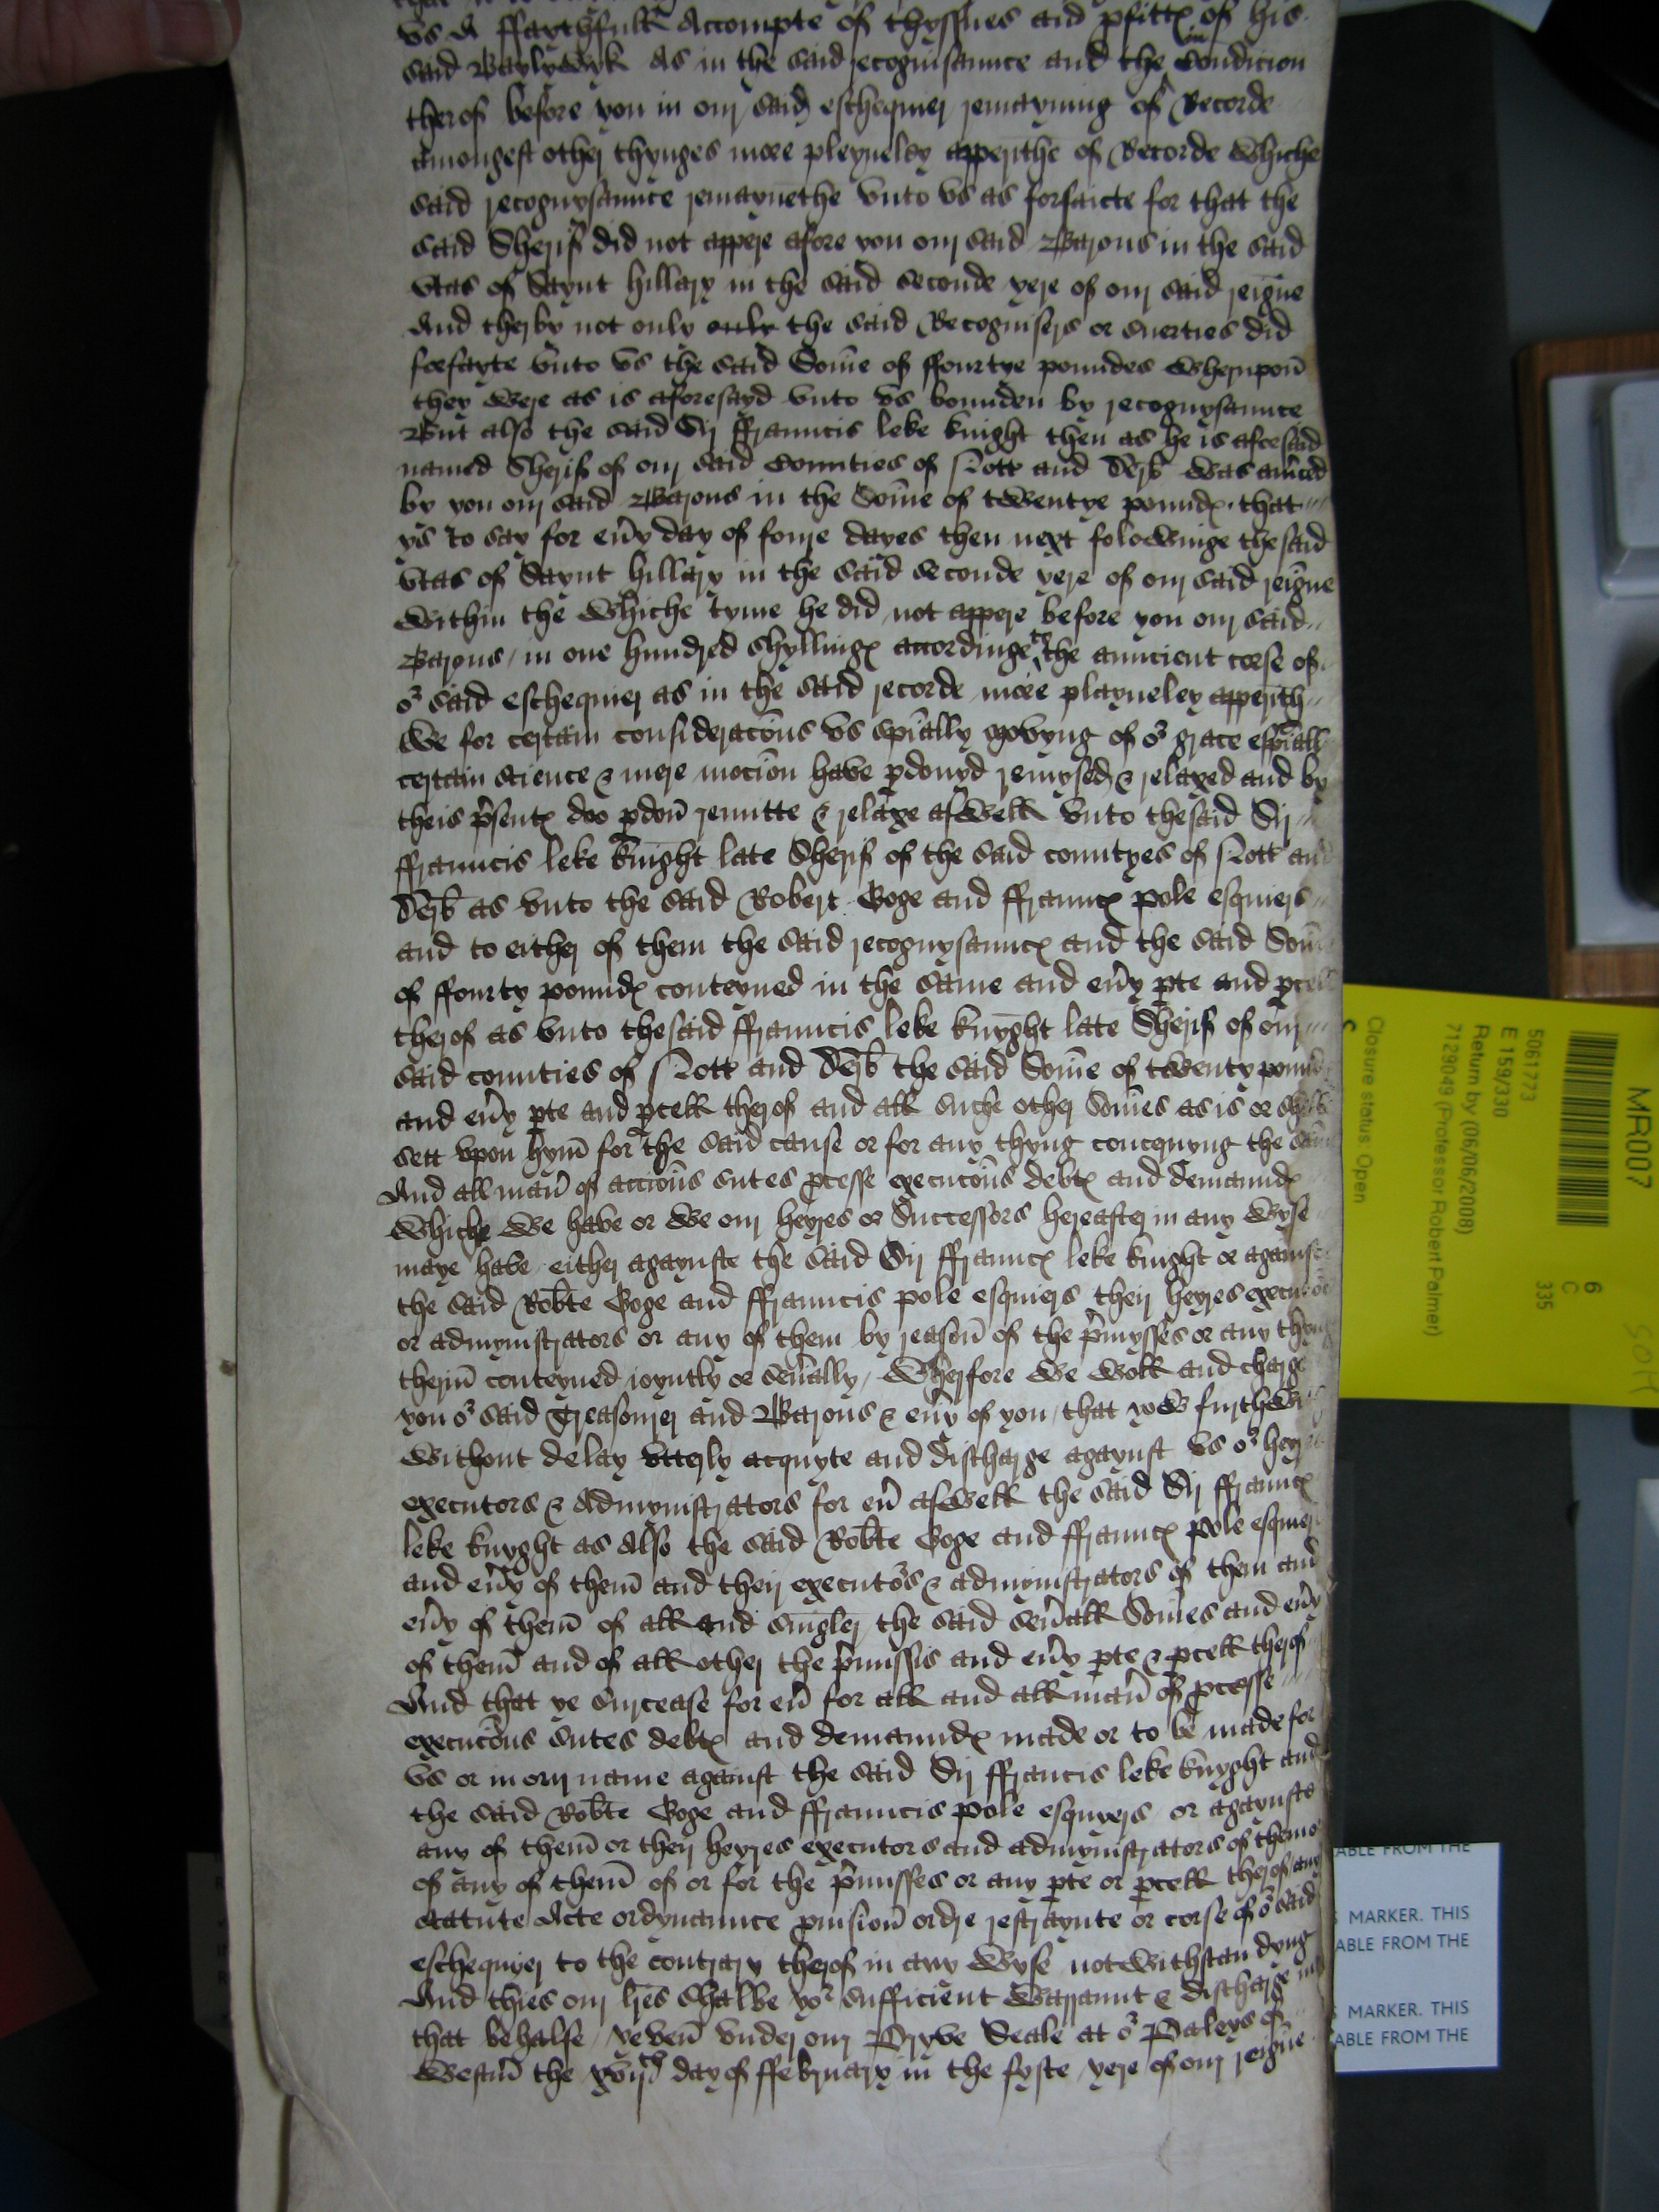 vs A ffaythfull Accompte of thyssues and pfitt of his
said Baylywyk As in the said recognisaunce and the in Condicion
therof before you in our said eschequier remayning of Recorde
amongest other thynges more pleyneley apperithe of Recorde Whiche
said recognysaunce remaynethe vnto vs as forfaicte for that the
said Sherif did not appere afore you our said Barons in the said
vtas of Saynt hillary in the said seconde yere of our said reigne
And therby not only only the said Recognisers or suerties did
forfayte vnto vs the said Som̄e of ffourtye poundes Wherupon̄
they were as is aforesayd vnto vs bounden by recognysaunce
But also the said Sir ffrauncis leke knight then as he is aforesaid
named Sherif of our said Counties of Nott and Derb was am̄ced
by you our said Barons in the Som̄e of twentye pound that
ys to say for eūy day of foure dayes then next folowinge the said
vtas of Saynt hillary in the said seconde yere of our said reigne
Within the Whiche tyme he did not appere before you our said
Barons / in one hundred shylling accordinge to the auncient corse of
or said eschequier as in the said recorde more playneley apperith
We for certain consideracōns vs sp̄ially movyng of or grace esp̄iall
certain science & mere mocion have pdonyd remysed & relaxed and by
theis p̄sent doo pdon̄ remitte & relaxe aswell vnto thesaid Sir
ffrauncis leke knight late Sherif of the said countyes of Nott and
Derb as vnto the said Robert Goge and ffraunc pole esquiers
and to either of them the said recognysaunc and the said Som̄
of ffourty pound conteyned in the same and eūy pte and pcell
therof as vnto thesaid ffrauncis leke knyght late Sherif of our
said counties of Nott and Derb the said Som̄e of twenty pound
and eūy pte and pcell therof and all suche other Som̄es as is or
sett vpon hym̄ for the said cause or for any thyng concernyng the
And all man̄ of accion̄s sutes pcesse execucōns debt and demaund
Whiche We have or We our heyres or Successors hereafter in any Wyse
maye have either agaynste the said Sir ffraunc leke knight or against
the said Robte Goge and ffrauncis pole esquiers their heyres executors
or admynistrators or any of them by reason̄ of the p̄mysses or any thyng
therin̄ conteyned ioyntly or seūally / Wherfore We Woll and charge
you or said Treasourer and Barons & eūy of you / that yow furthwith
Without delay vtterly acquyte and discharge agaynst vs or heyres
executors & Admynistrators for eū asWell the said Sir ffraunc
leke knyght as Also the said Robte Goge and ffraunc pole esquiers
and eūy of them̄ and their executors & admynistrators of them and
eūy of them̄ of all and singler the said seūall Som̄es and eūy
of them̄ and of all other the p̄missis and eūy pte & pcell therof
And that ye surcease for eū for all and all man̄ of pcesse
execucōns sutes debt and demaund made or to be made for
vs or in our name against the said Sir ffrancis leke knyght and
the said Robte Goge and ffrauncis pole esquyers / or agaynste
any of them̄ or their heyres executors and admynistrators of theme
of any of them̄ of or for the p̄misses or any pte or pcell therof any
statute Acte ordynaunce puision̄ ordre restraynte or corse of or said
eschequyer to the contrary therof in any Wyse notWithstandyng
And thies our lr̄es shalbe yor sufficient Warraunt & discharge in
that behalfe / yeven̄ vnder our Pryve Seale at or Paleys of
Westm̄ the xvijth day of ffebruary in the fyfte yere of our reigne
MR007
6
C
335
5061773
E 159/330
Return by (06/06/2008)
7129049 (Professor Robert Palmer)
Closure status: Open
ABLE FROM THE
MARKER. THIS
ABLE FROM THE
MARKER. THIS
ABLE FROM THE